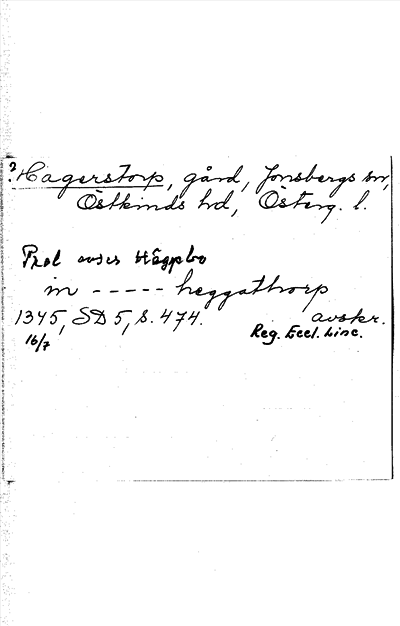 ? Hagerstorp, gård, Jonsbergs sn,
Östkinds hd, Österg. l.
avses Häggebo
in ----- heggathorp
1345, SD 5, s. 474. avskr.
16/7 Reg. Eccl. Linc.